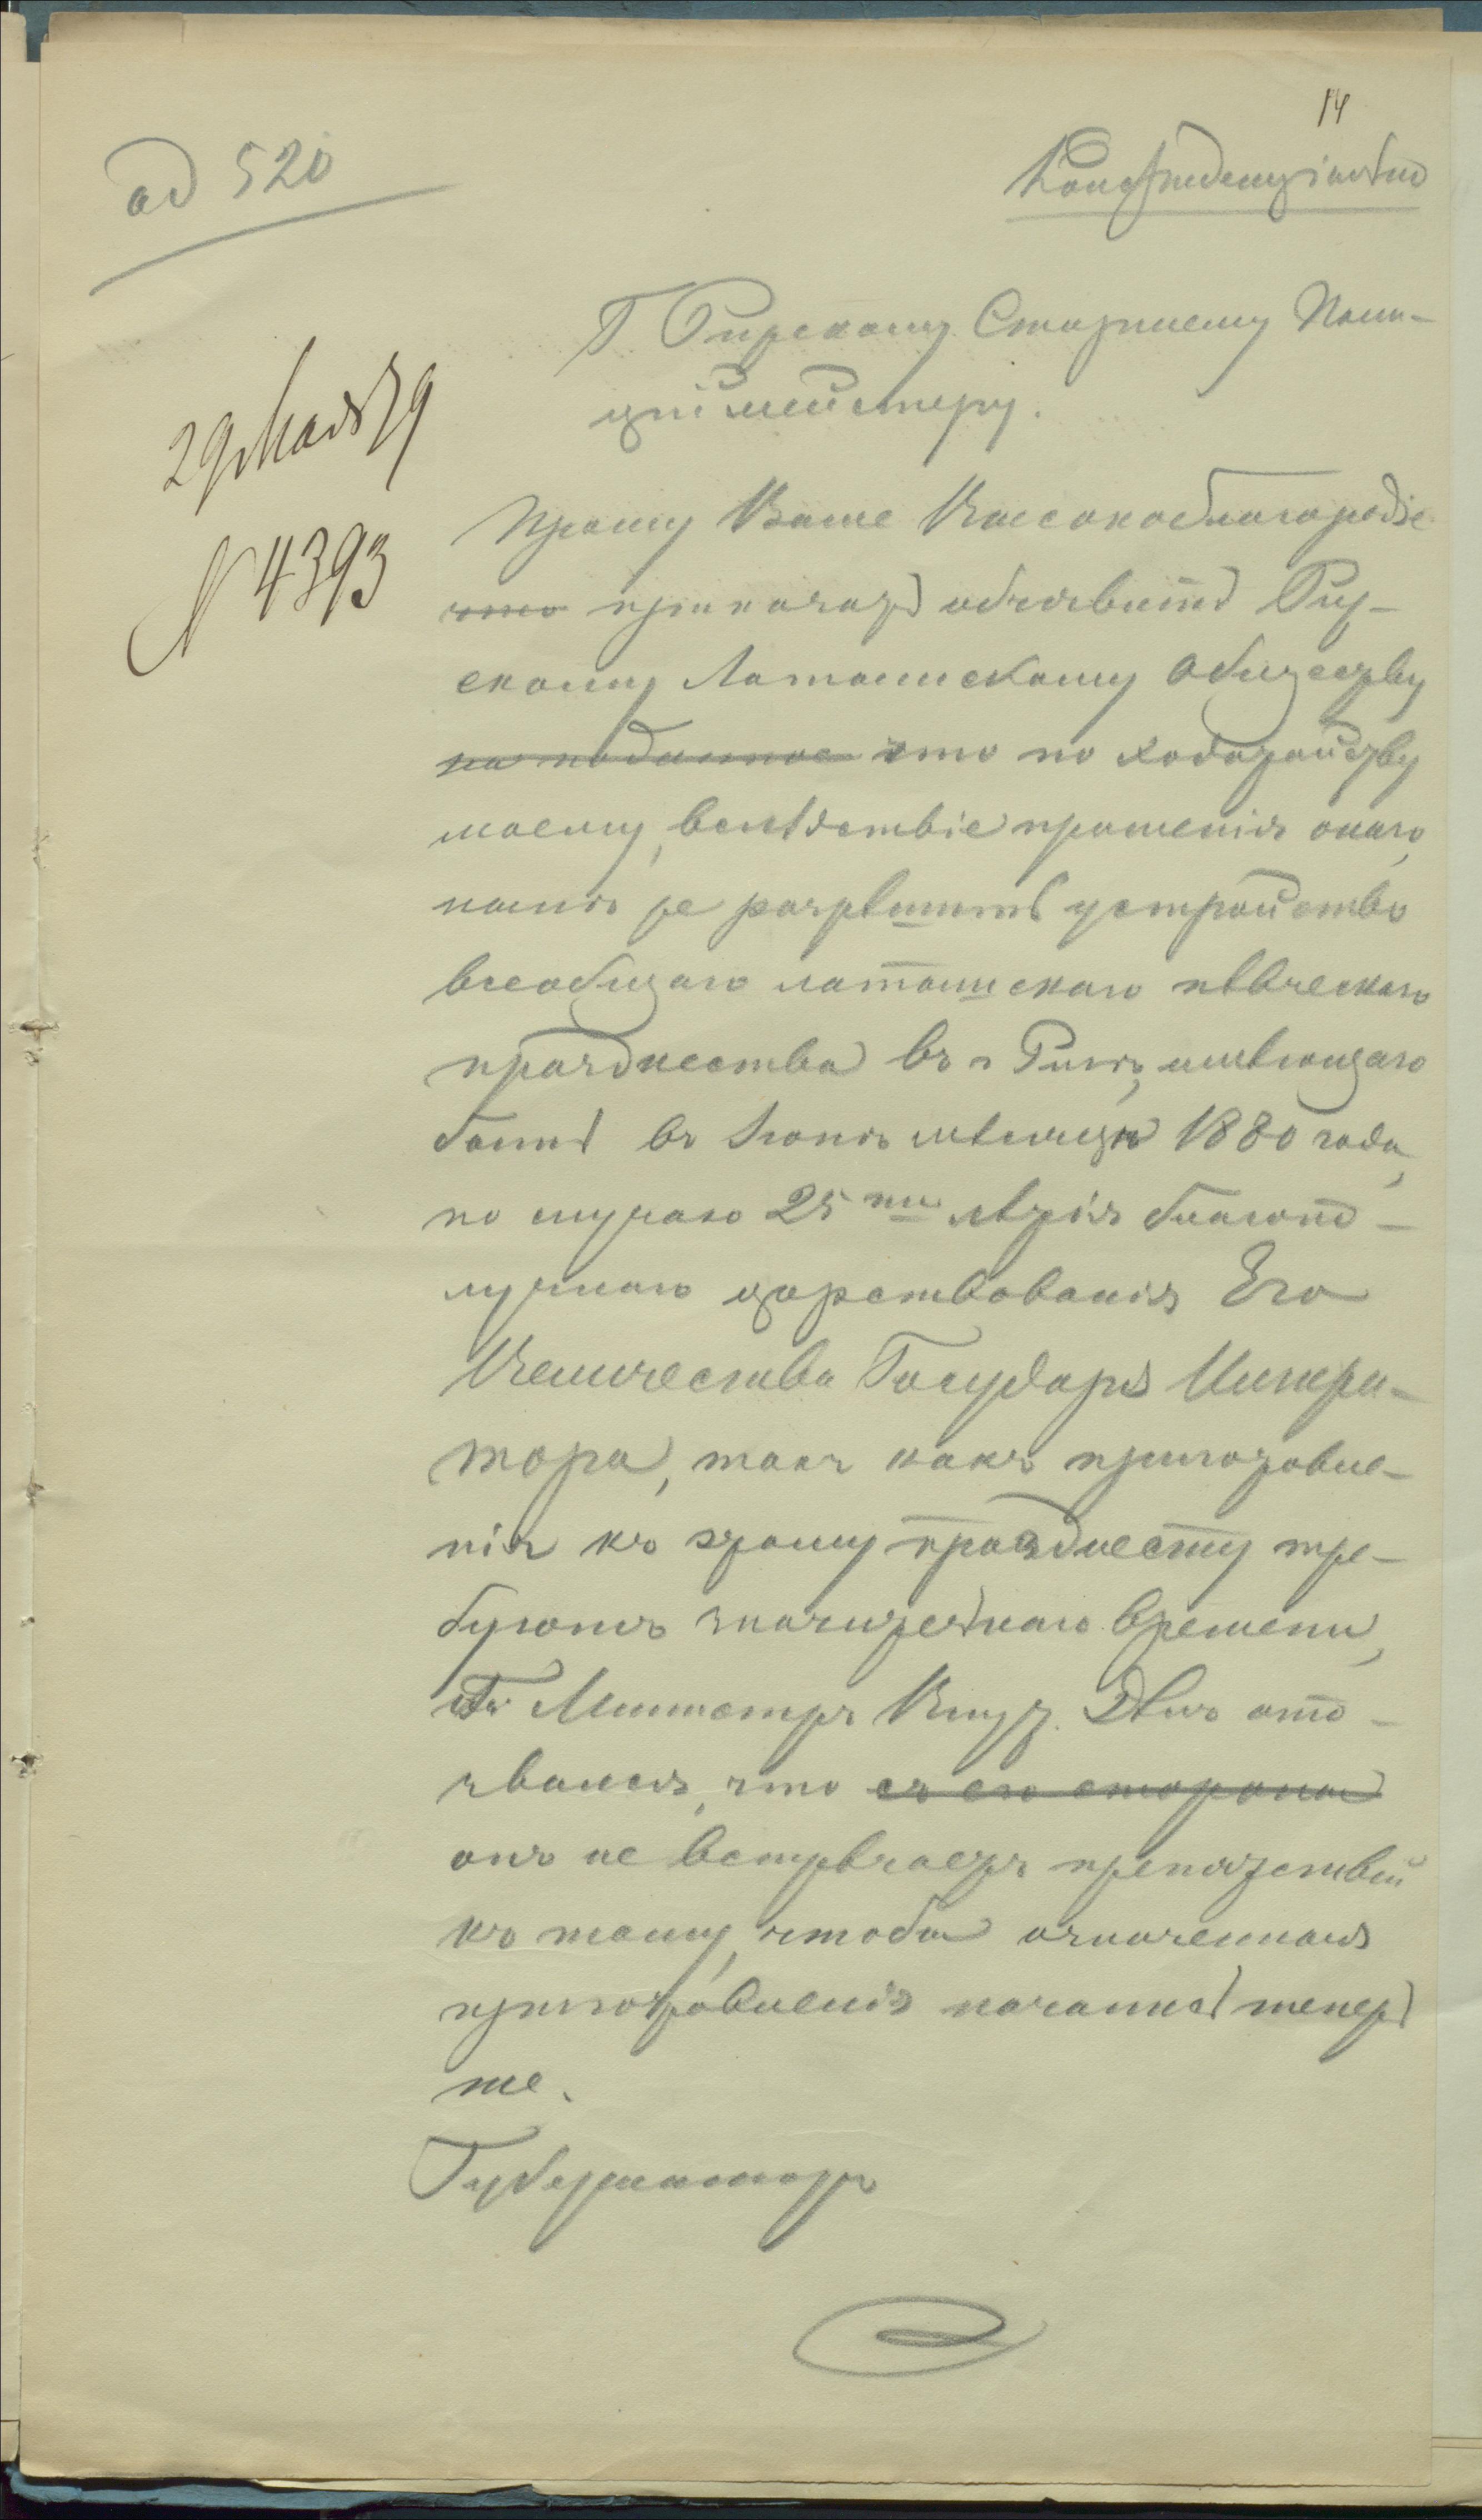 14
ad 520
Конфиденціально
Г Рижскому Старшему Поли-
ціймейстеру.
29 Мая 79
N 4393
Прошу Ваше Высокоблагородіе
что приказать объявить Риж-
скому Латышскому Обществу
на поданное что по ходатайству
моему, вслѣдствіе прошенія онаго,
разрѣшить устройство
всеобщаго латышскаго пѣвческаго
празднества въ г Ригѣ, имѣющаго
быть въ Іюнѣ мѣсяцѣ 1880 года,
по случаю 25ти лѣтія благопо-
лучнаго царствованія Его
Величества Государя Импера-
тора, такъ какъ приготовле-
нія къ этому празднеству тре-
буютъ значительнаго времени,
Г. Министръ Внут. Дѣлъ ото-
звался, что съ его стороны
онъ не встрѣчаетъ препятствій
къ тому, чтобы означенныя
приготовленія начались теперь
же.
Губернаторъ